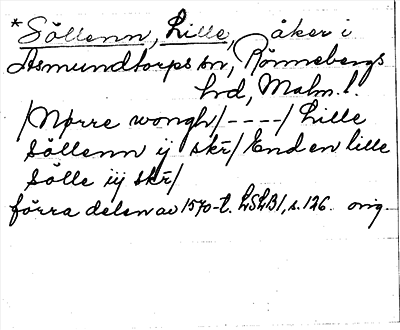 *Söllenn, Lille, åker i
Asmundtorps sn, Rönnebergs
hd, Malm. l.
/Nørre wongh/----/ Lille
Söllenn ij skr̄/ End en lille
Sölle iij skr̄/
förra delen av 1570-t. LSLB1, s. 126. orig.